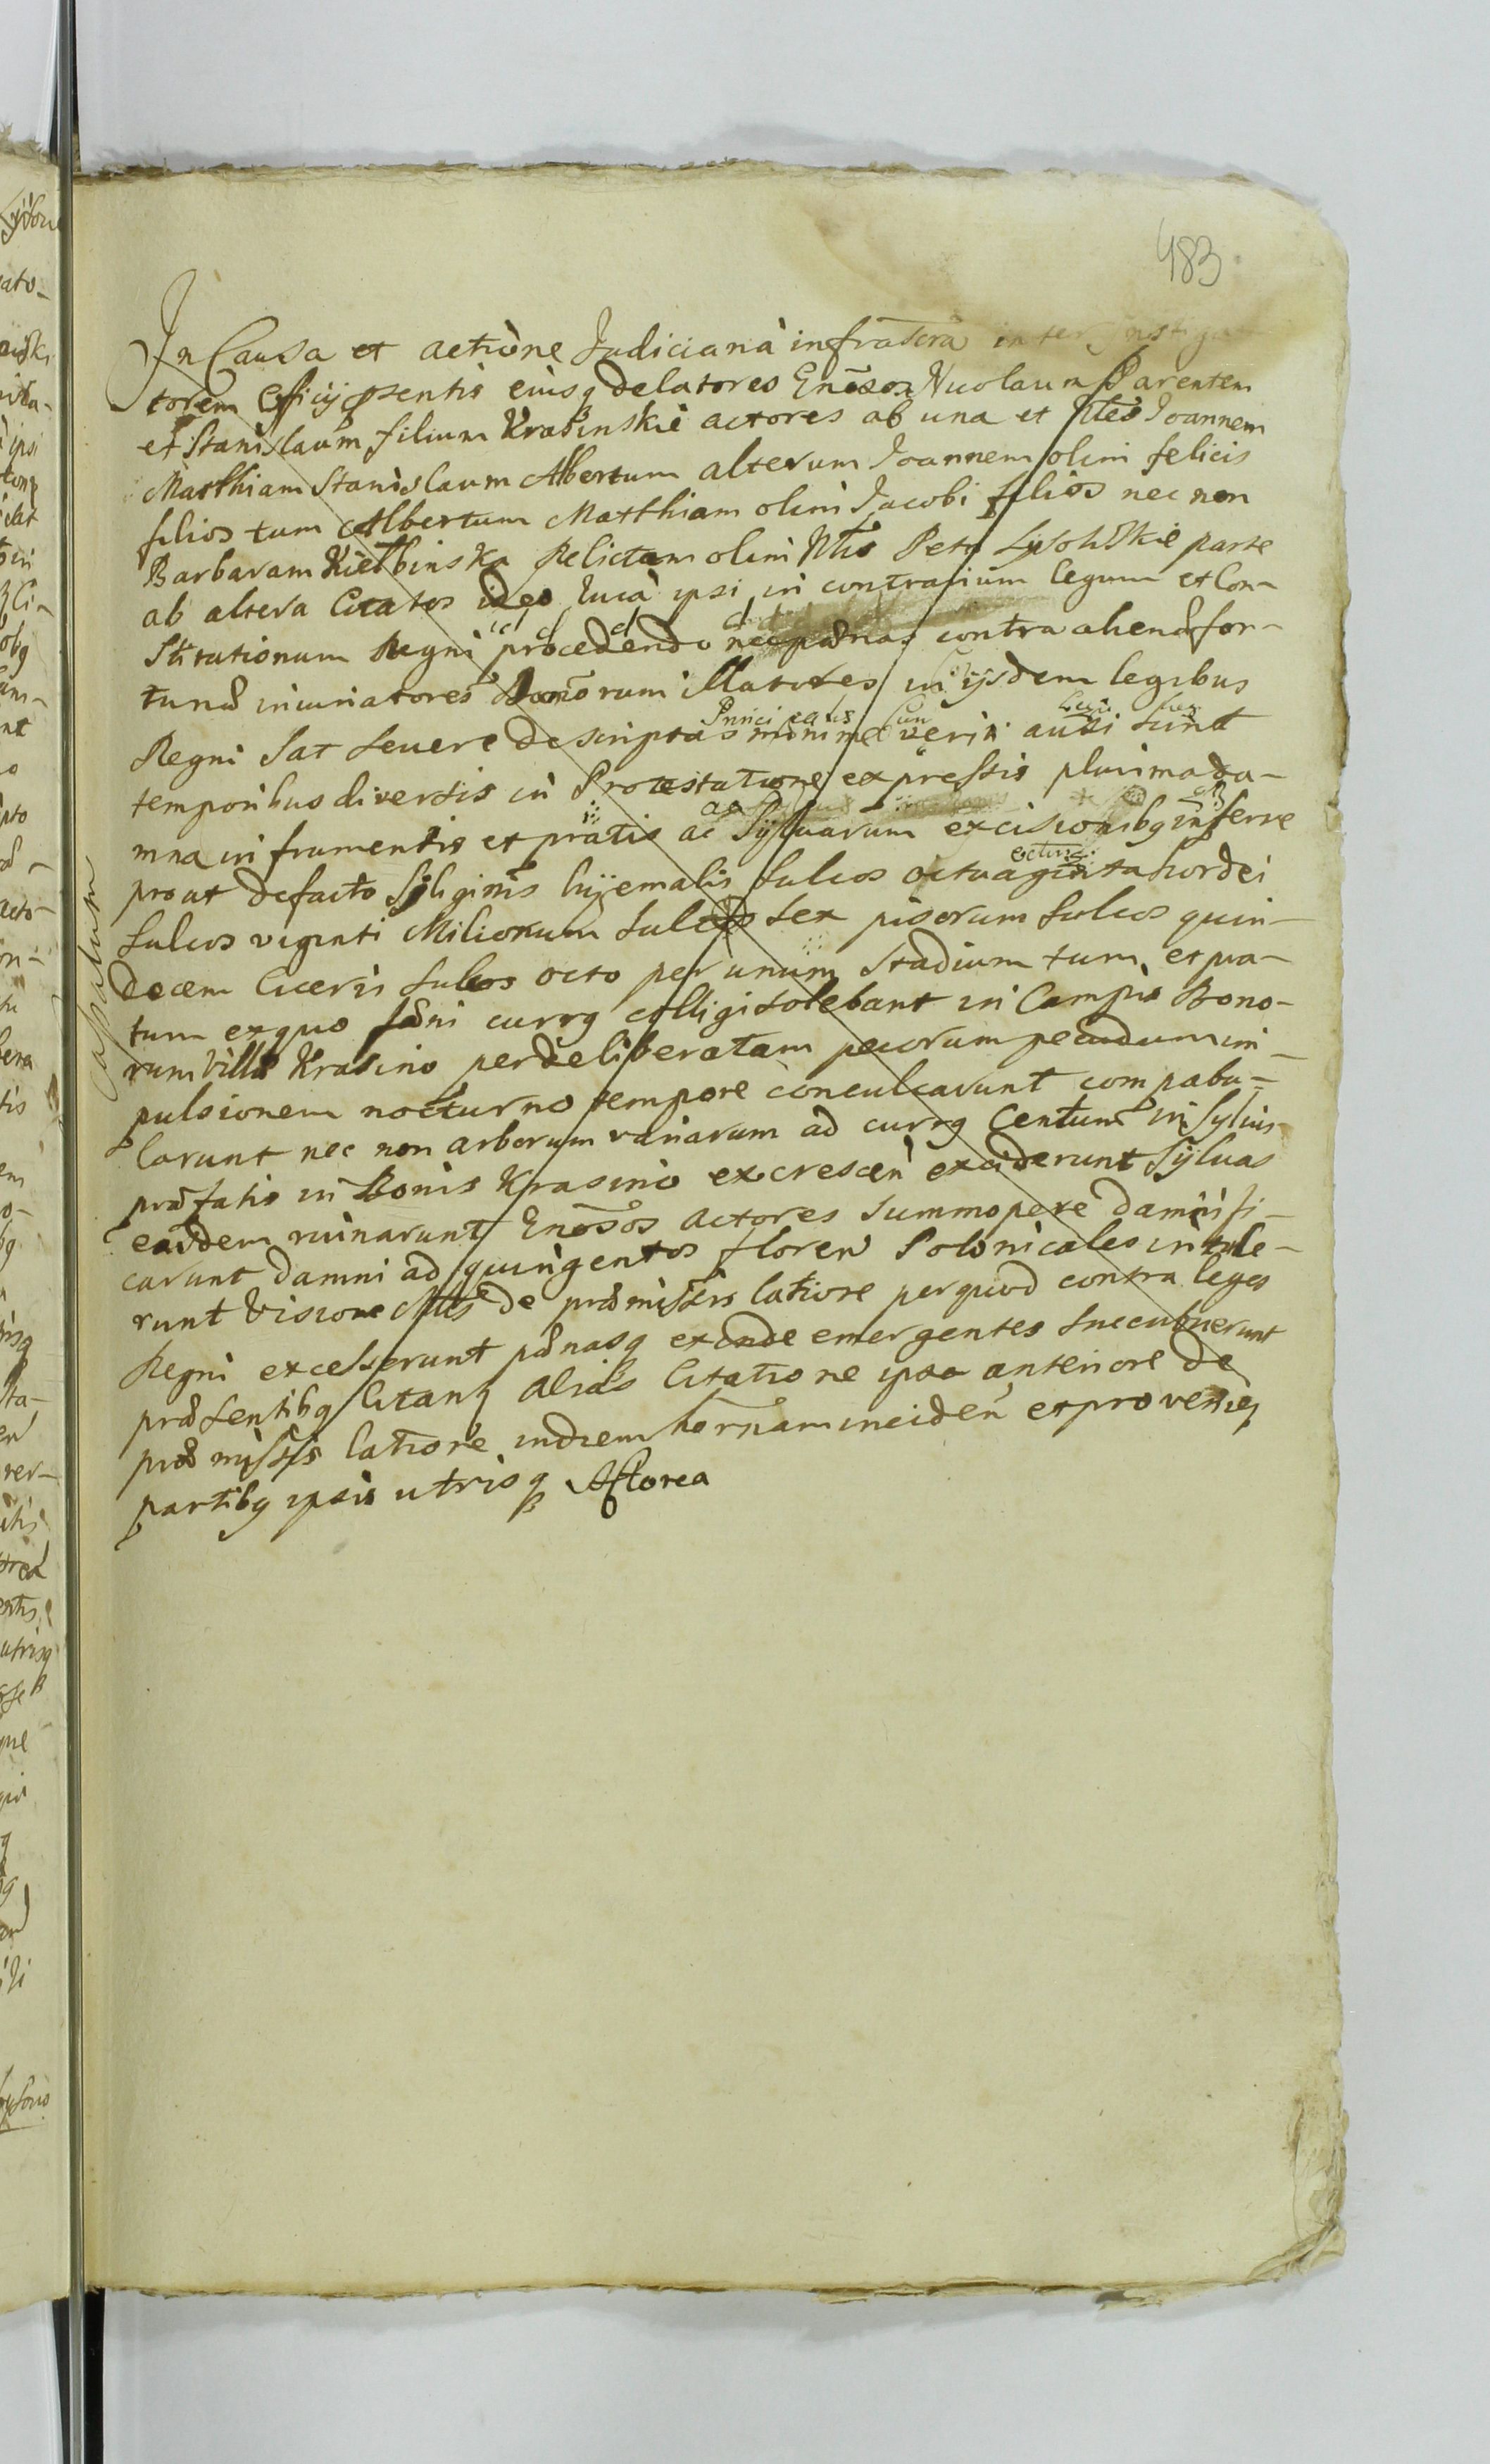 483
In Causa et actione Judiciaria infrascra inter Instiga
torem Officij psentis eiusq delatores Gnosos Nicolaum Parentem
et Stanislaum filium Krasinskie actores ab una et Nles Joannem
Matthiam Stanislaum Albertum alterum Joannem olim felicis
filios tum Albertum Matthiam olim Jacobi filios nec non
Barbaram Kiełbinska Relictam olim Nlis Petri parte
ab altera Citatos ideo quia ipsi in contrarium legum et Con-
stitutionum Regni procedendo nec pœnas contra alienæ for-
tunæ iniuriatores Damnorum illatores in ijsdem legibus
Regni sat severe descriptas minime veriti ausi sunt
temporibus diversis in Protestatione expressis plurima da-
mna in frumentis et pratis ac Sÿluarum excisionibq inferre
prout defacto Siliginis hÿemalis sulcos octuaginta hordei
sulcos viginti Miliorum sulcos sex pisorum sulcos quin-
decem Ciceris sulcos octo per unum Stadium tum et pra-
tum exquo fœni currq colligi solebant in Campis Bono-
rum Villæ Krasino per deliberatam pecorum pecudum im-
pulsionem nocturno tempore conculcarunt compabu-
larunt nec non arborum variarum ad currq Centum in Syluis
præfatis in Bonis Krasino excrescen exciderunt Sÿluas
easdem ruinarunt Gnosos Actores summopere damnifi-
carunt damni ad quingentos floren Polonicales intule-
runt Visione Mlis de præmissis latiore per quod contra leges
Regni excesserunt pœnasq exinde emergentes succubuerunt
præsentibq Citant alias Citatione ipsa anteriore de
præmissis latiore indiem hornam inciden et proveniq
partibq ipsis utrisq
Cassatum